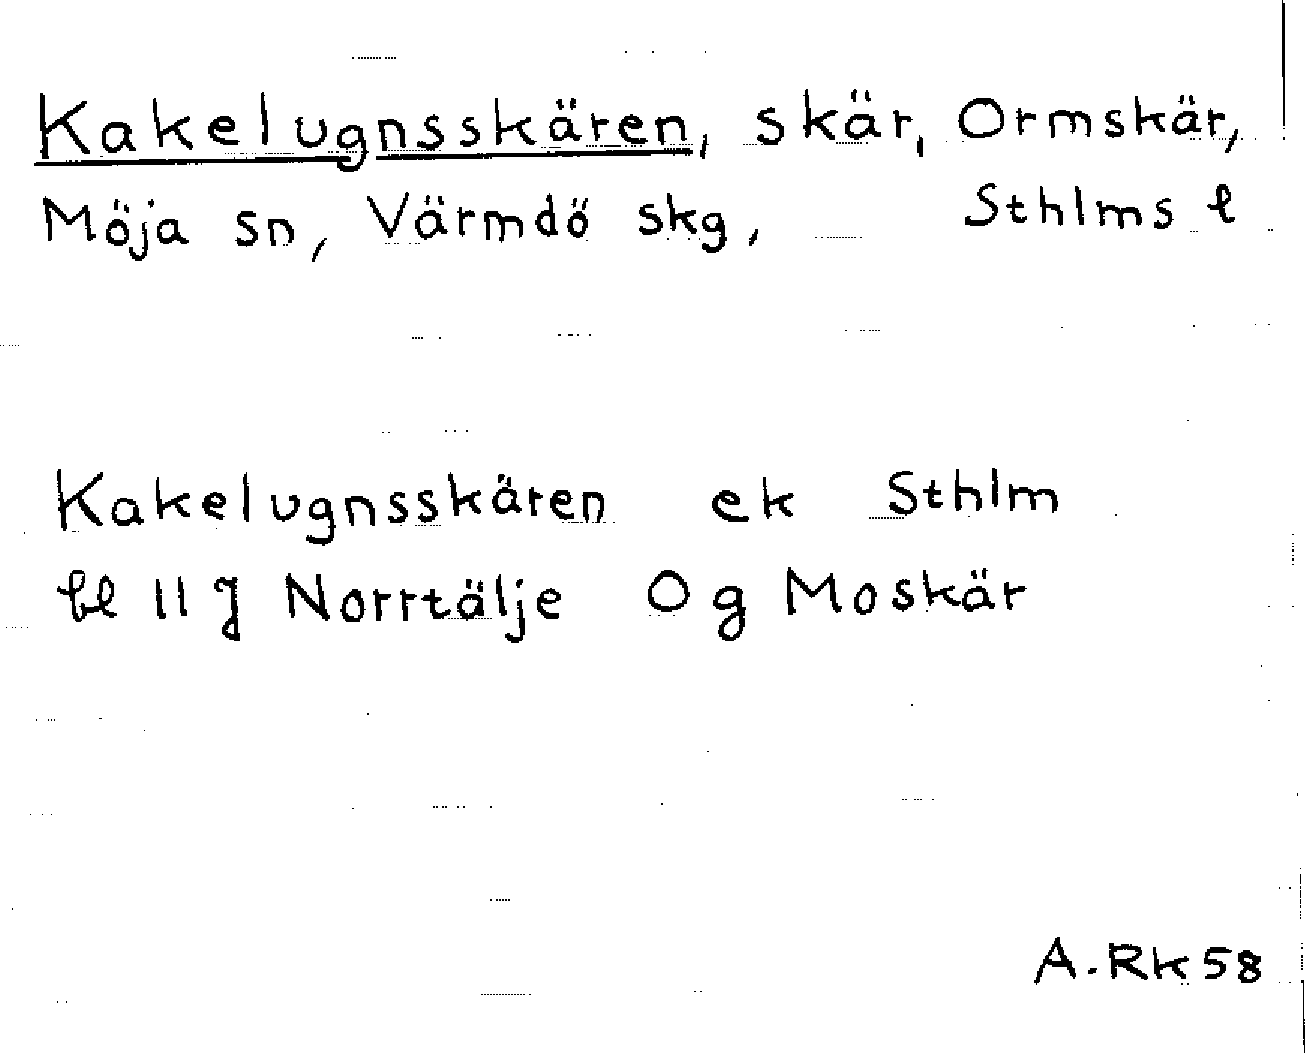 Kakelugnsskären, skär, Ormskär,
Möja sn, Värmdö skg, Sthlms l
Kakelugnsskären ek Sthlm
bl 11 J Norrtälje Og Moskär
A.Rk 58